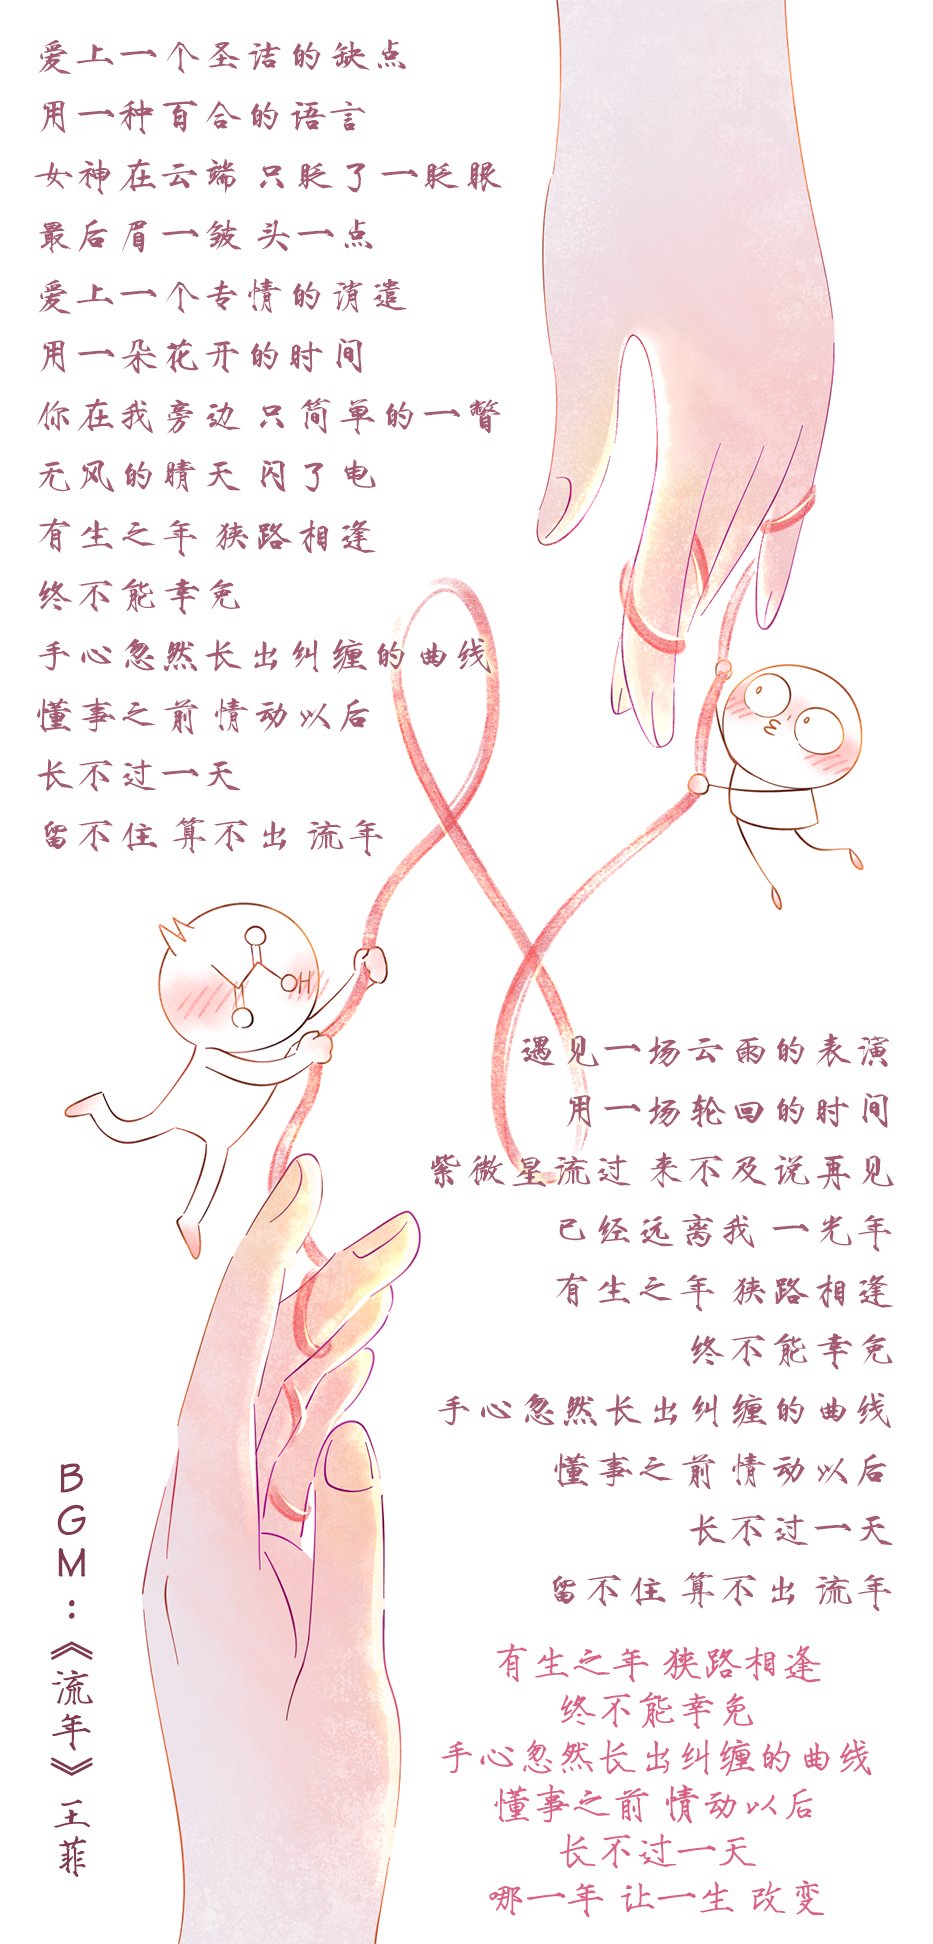 爱上一个圣洁的缺点
用一种百合的语言
女神在云端 只眨了一眨眼
最后眉一皱 头一点
爱上一个专情的消遣
用一朵花开的时间
你在我旁边 只简单的一瞥
无风的晴天 闪了电
有生之年 狭路相逢
终不能幸免
手心忽然长出纠缠的曲线
懂事之前 情动以后
长不过一天
留不住 算不出 流年
OH
遇见一场云雨的表演
用一场轮回的时间
紫微星流过 来不及说再见
已经远离我 一光年
有生之年 狭路相逢
终不能幸免
手心忽然长出纠缠的曲线
懂事之前 情动以后
长不过一天
留不住 算不出 流年
有生之年 狭路相逢
终不能幸免
手心忽然长出纠缠的曲线
懂事之前 情动以后
长不过一天
哪一年 让一生 改变
BGM：《流年》王菲